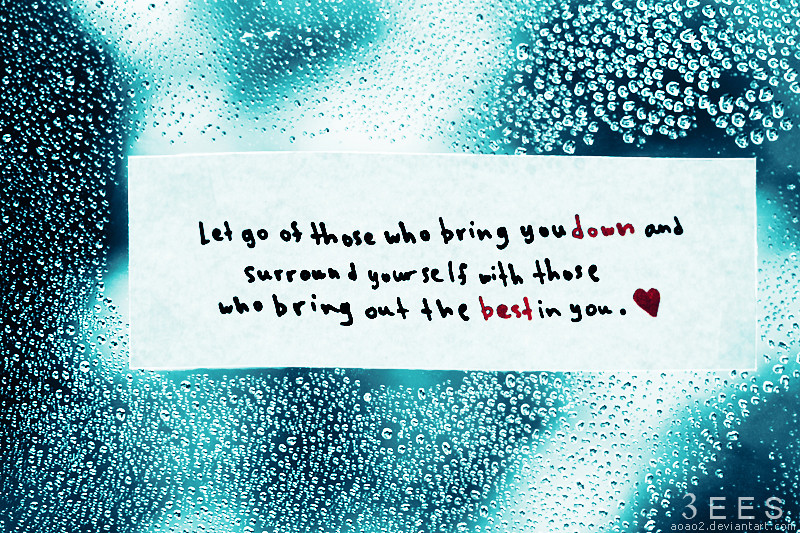 Let go of those who bring you down and
surround yourself with those
who bring out the best in you. ♥
3EES
aoao2.deviantart.com